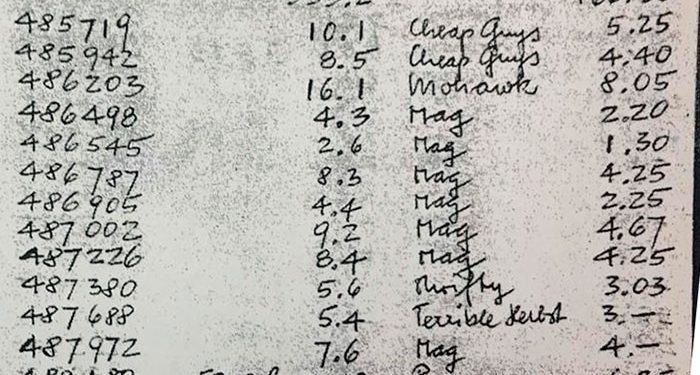 485719 10.1 Cheap Guys 5.25
485942 8.5 Cheap Guys 4.40
486203 16.1 Mohawk 8.05
486498 4.3 Mag 2.20
486545 2.6 Mag 1.30
486787 8.3 Mag 4.25
486905 4.4 Mag 2.25
487002 9.2 Mag 4.67
487226 8.4 Mag 4.25
487380 5.6 Thrifty 3.03
487688 5.4 Terrible Herbst 3.—
487972 7.6 Mag 4.—